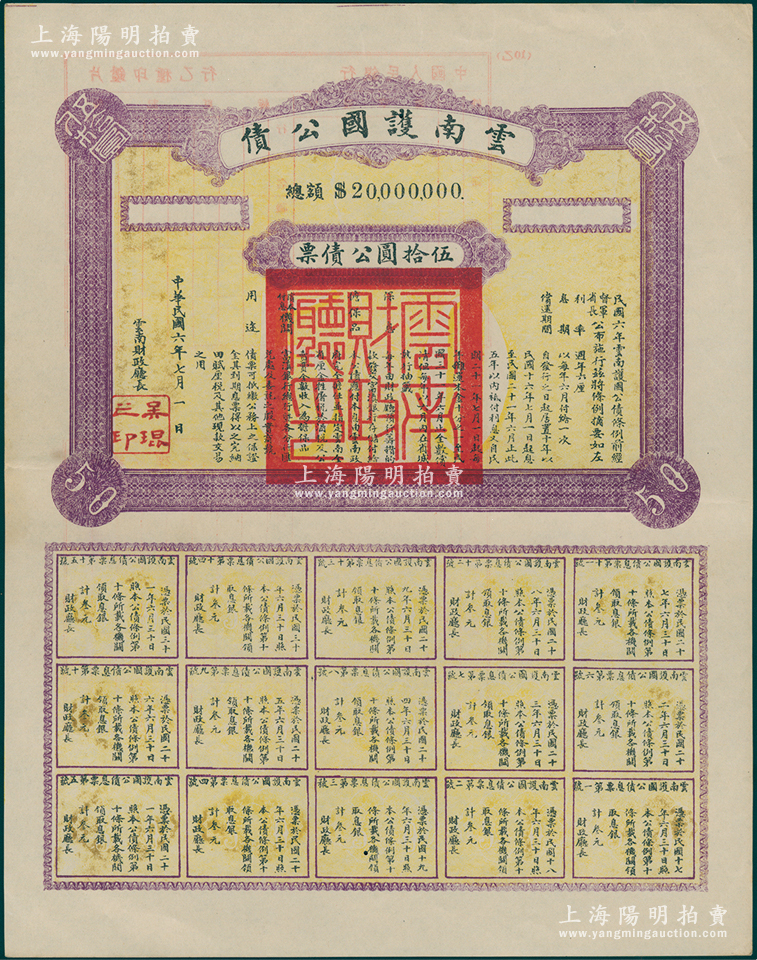 上海陽明拍賣
www.yangmingauction.com
雲南護國公債
伍拾圓
伍拾圓
總額 $20,000,000.
伍拾圓公債票
民國六年雲南護國公債條例前經
督軍
省長
公布施行茲將條例摘要如左
利率 週年六厘
息期 以每年六月付給一次
償還期間 自發行之日起除置十年以
民國十六年七月一日起息
至民國二十一年六月止此
五年以內祇付利息又自民
國二十一年七月一日起每
擔保品
付息機關
用途
債票可抵繳公務上之保證
金其利期息票得以之完納
田賦厘税及其他現款交易
之用
中華民國六年七月一日
雲南財政廳長
吳琨之印
50
50
雲南護國公債息票第十一號
憑票於民國二十
七年六月三十日
照本公債條例第
十條所載各機關
領取息銀
計叁元
財政廳長
雲南護國公債息票第十二號
憑票於民國二十
八年六月三十日
照本公債條例第
十條所載各機關
領取息銀
計叁元
財政廳長
雲南護國公債息票第十三號
憑票於民國二十
九年六月三十日
照本公債條例第
十條所載各機關
領取息銀
計叁元
財政廳長
雲南護國公債息票第十四號
憑票於民國三十
年六月三十日照
本公債條例第十
條所載各機關領
取息銀
計叁元
財政廳長
雲南護國公債息票第十五號
憑票於民國三十
一年六月三十日
照本公債條例第
十條所載各機關
領取息銀
計叁元
財政廳長
雲南護國公債息票第六號
憑票於民國二十
二年六月三十日
照本公債條例第
十條所載各機關
領取息銀
計叁元
財政廳長
雲南護國公債息票第七號
憑票於民國二十
三年六月三十日
照本公債條例第
十條所載各機關
領取息銀
計叁元
財政廳長
雲南護國公債息票第八號
憑票於民國二十
四年六月三十日
照本公債條例第
十條所載各機關
領取息銀
計叁元
財政廳長
雲南護國公債息票第九號
憑票於民國二十
五年六月三十日
照本公債條例第
十條所載各機關
領取息銀
計叁元
財政廳長
雲南護國公債息票第十號
憑票於民國二十
六年六月三十日
照本公債條例第
十條所載各機關
領取息銀
計叁元
財政廳長
雲南護國公債息票第一號
憑票於民國十七
年六月三十日照
本公債條例第十
條所載各機關領
取息銀
計叁元
財政廳長
雲南護國公債息票第二號
憑票於民國十八
年六月三十日照
本公債條例第十
條所載各機關領
取息銀
計叁元
財政廳長
雲南護國公債息票第三號
憑票於民國十九
年六月三十日照
本公債條例第十
條所載各機關領
取息銀
計叁元
財政廳長
雲南護國公債息票第四號
憑票於民國二十
年六月三十日照
本公債條例第十
條所載各機關領
取息銀
計叁元
財政廳長
雲南護國公債息票第五號
憑票於民國二十
一年六月三十日
照本公債條例第
十條所載各機關
領取息銀
計叁元
財政廳長
上海陽明拍賣
www.yangmingauction.com
上海陽明拍賣
www.yangmingauction.com